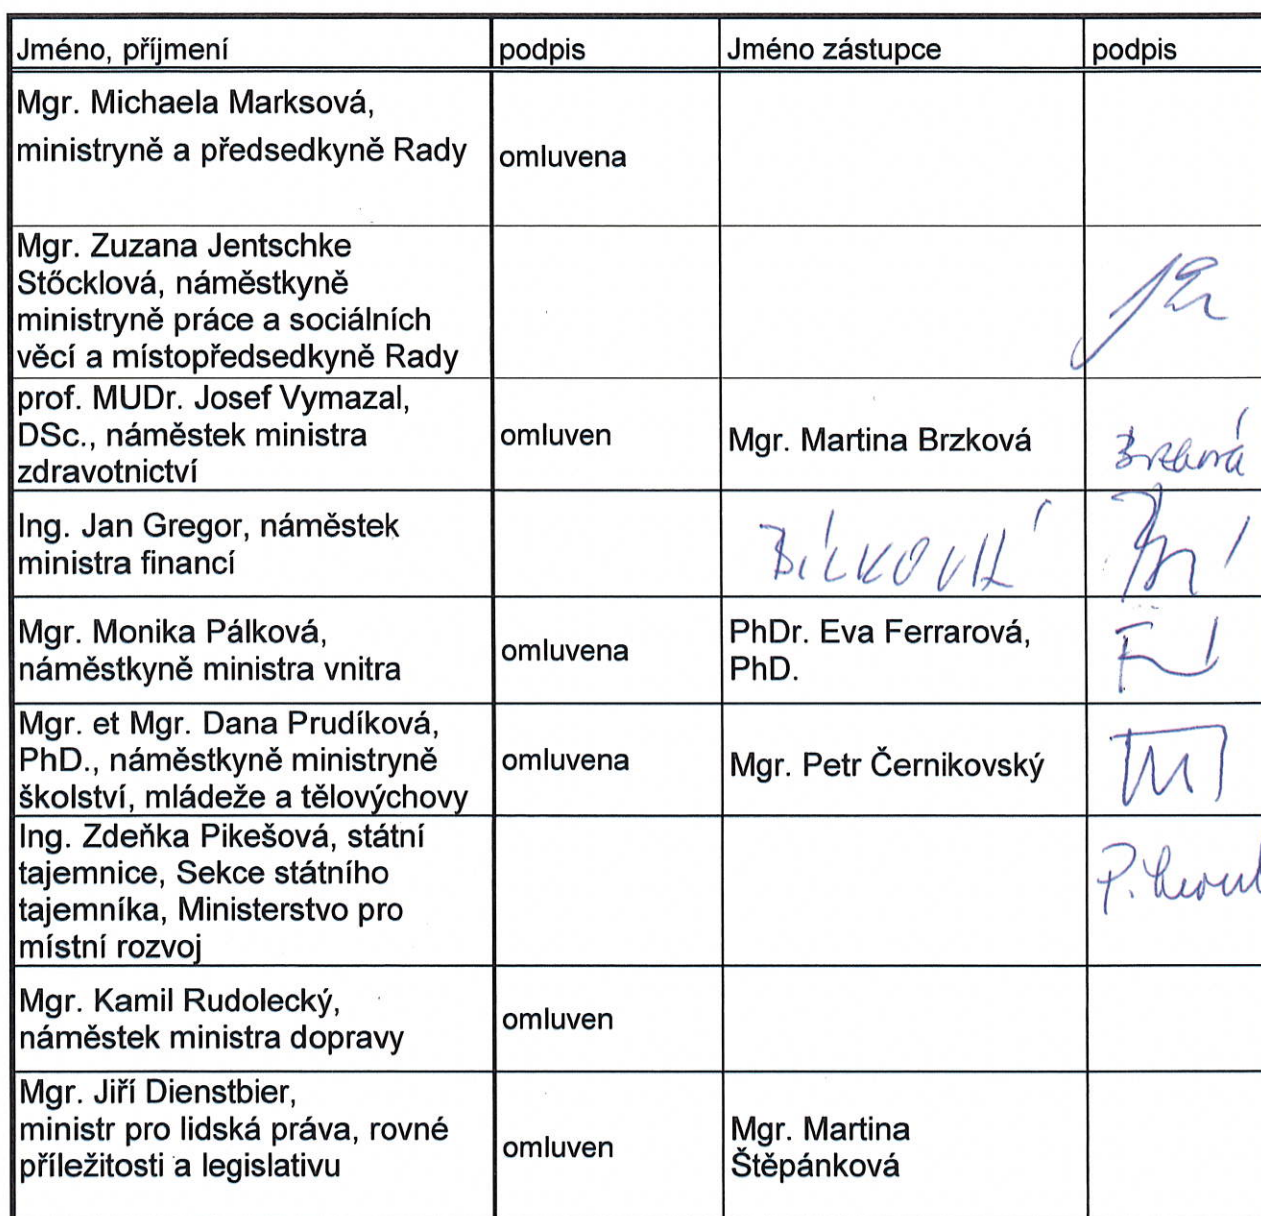 Jméno, příjmení podpis Jméno zástupce podpis
Mgr. Michaela Marksová,
ministryně a předsedkyně Rady omluvena
Mgr. Zuzana Jentschke
Stőcklová, náměstkyně
ministryně práce a sociálních
věcí a místopředsedkyně Rady
prof. MUDr. Josef Vymazal,
DSc., náměstek ministra omluven Mgr. Martina Brzková Brzková
zdravotnictví
Ing. Jan Gregor, náměstek
ministra financí BÍLKOVÁ
Mgr. Monika Pálková, PhDr. Eva Ferrarová,
náměstkyně ministra vnitra omluvena PhD.
Mgr. et Mgr. Dana Prudíková,
PhD., náměstkyně ministryně omluvena Mgr. Petr Černikovský
školství, mládeže a tělovýchovy
Ing. Zdeňka Pikešová, státní
tajemnice, Sekce státního
tajemníka, Ministerstvo pro
místní rozvoj
Mgr. Kamil Rudolecký,
náměstek ministra dopravy omluven
Mgr. Jiří Dienstbier,
ministr pro lidská práva, rovné omluven Mgr. Martina
příležitosti a legislativu Štěpánková